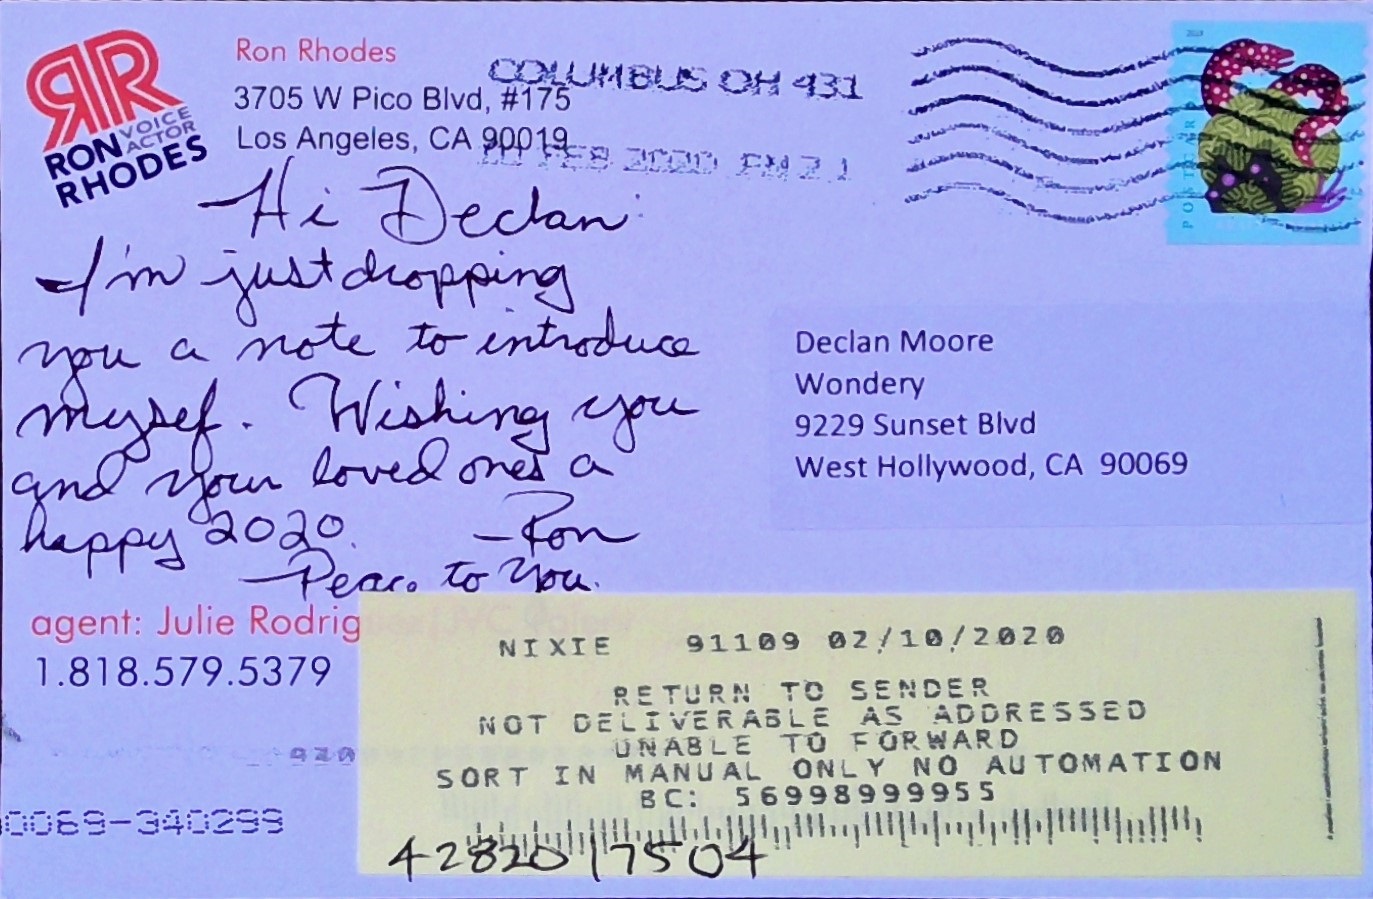 RR
RON VOICE
ACTOR
RHODES
Ron Rhodes
3705 W Pico Blvd, #175
Los Angeles, CA 90019
COLUMBUS OH 431
FEB 2020 PM 2 1
POSTCARD
Hi Declan
I'm just dropping
you a note to introduce
mysef. Wishing you
and your loved ones a
happy 2020.
—Ron
—Peace to You.
Declan Moore
Wondery
9229 Sunset Blvd
West Hollywood, CA 90069
agent: Julie Rodrig
1.818.579.5379
NIXIE 91109 02/10/2020
RETURN TO SENDER
NOT DELIVERABLE AS ADDRESSED
UNABLE TO FORWARD
SORT IN MANUAL ONLY NO AUTOMATION
BC: 56998999955
0069-340299
4282017504